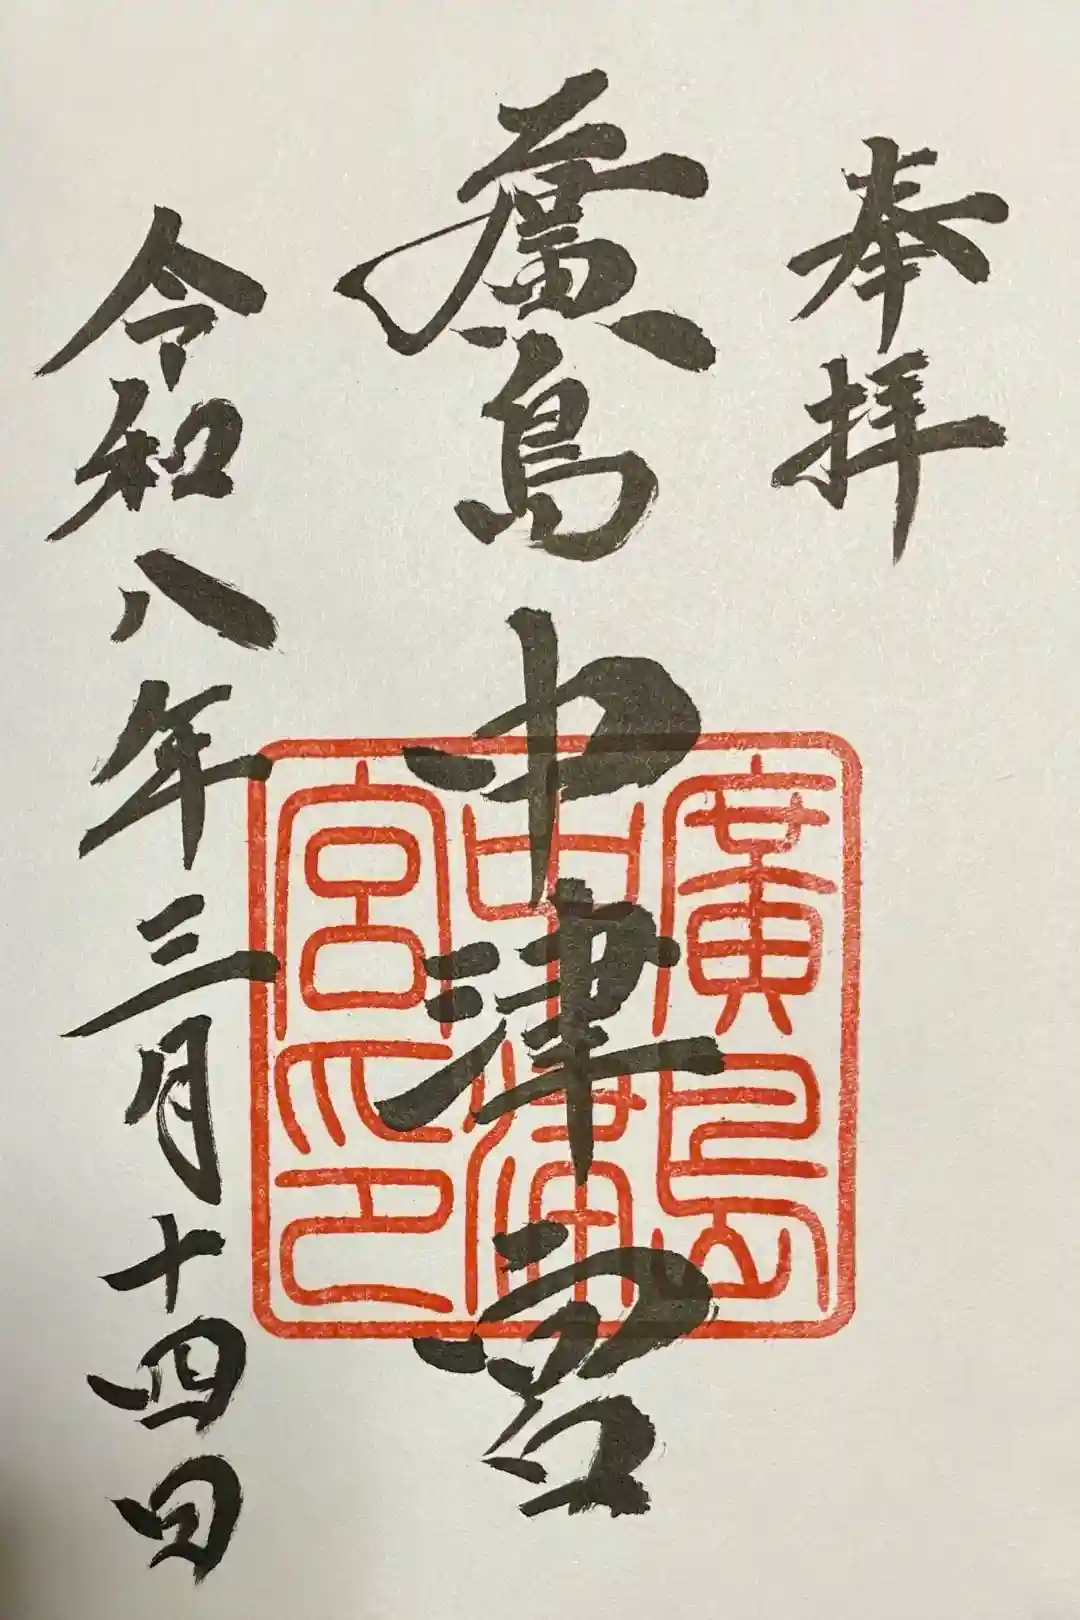 奉拝
廣島中津宮
令和八年三月十四日
廣島
中津
宮印